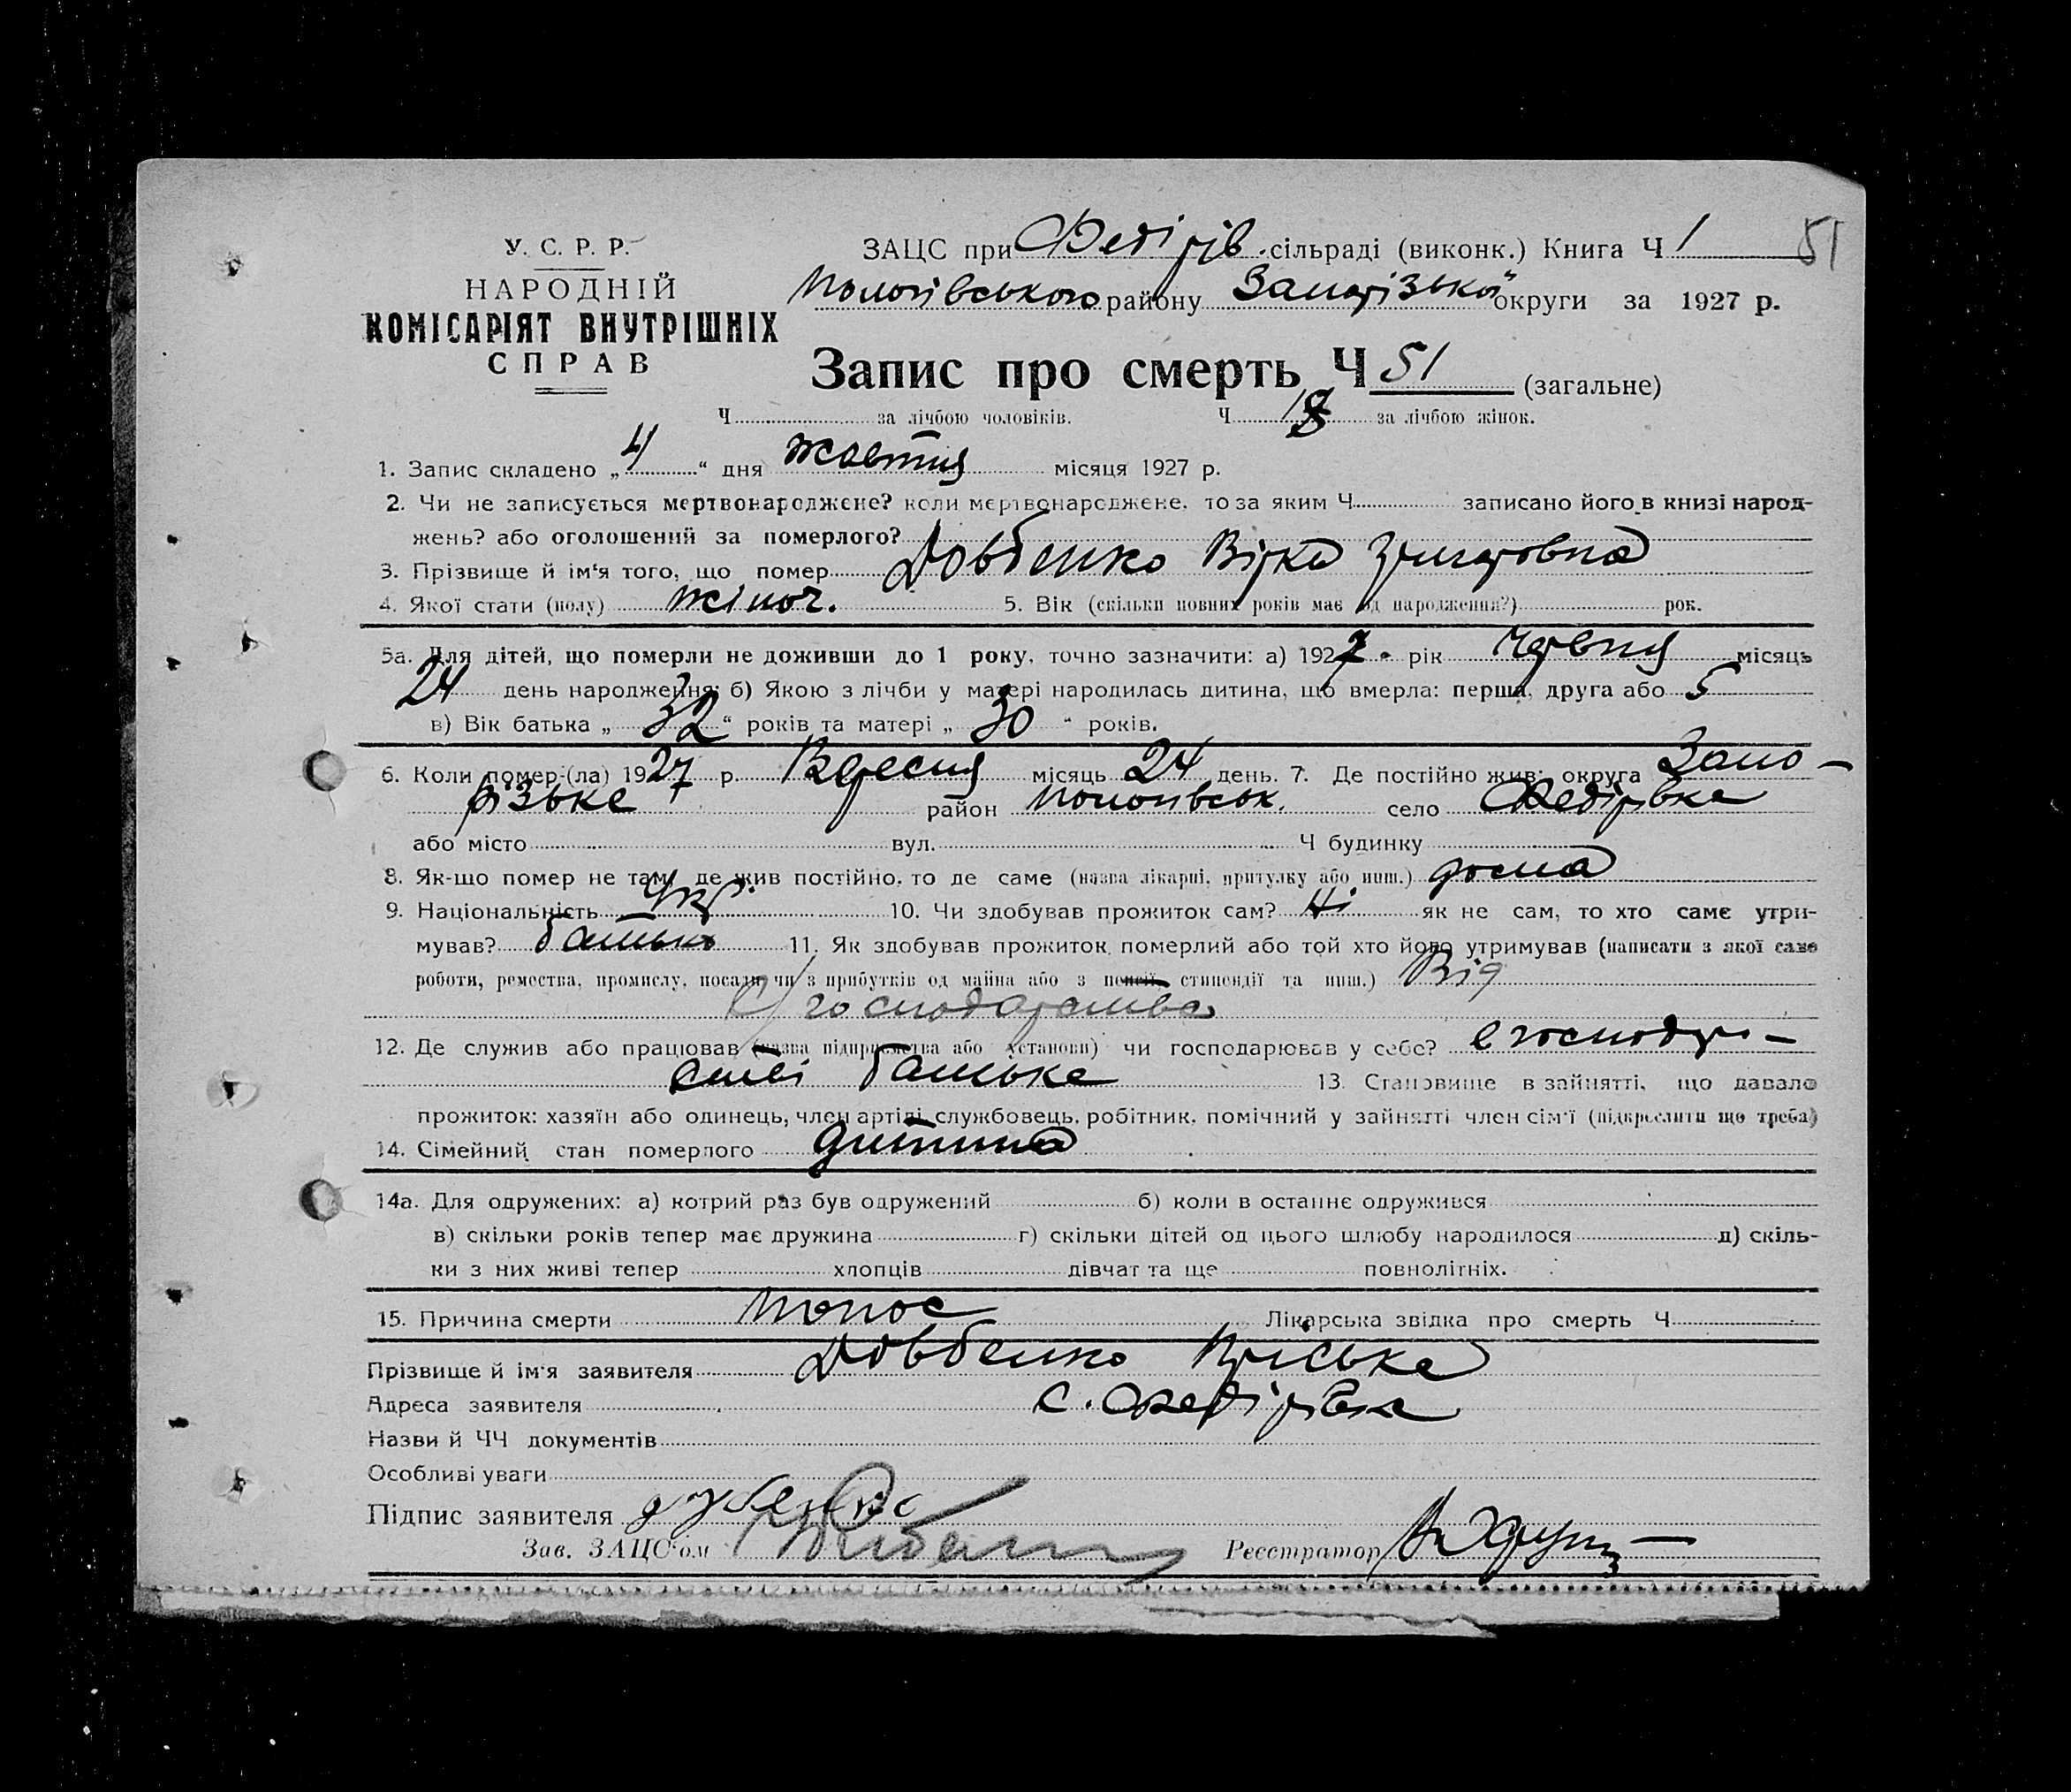 У. С. Р. Р.
НАРОДНІЙ
КОМІСАРІЯТ ВНУТРІШНІХ
СПРАВ
ЗАЦС при Федірів. сільраді (виконк.) Книга Ч 1 51
Пологівського району Запорізької округи за 1927 р.
Запис про смерть Ч 51 (загальне)
Ч за лічбою чоловіків. Ч за лічбою жінок.
1. Запис складено „4“ дня жовтня місяця 1927 р.
2. Чи не записується мертвонароджене? коли мертвонароджене, то за яким Ч записано його в книзі народ-
жень? або оголошений за померлого?
3. Прізвище й ім'я того, що помер Довбенко Вірка
4. Якої стати (полу) жіноч. 5. Вік (скільки повних років має од народження?) рок.
5а. Для дітей, що померли не доживши до 1 року, точно зазначити: а) 1927 рік червня місяць
24 день народження; б) Якою з лічби у матері народилась дитина, що вмерла: перша, друга або 5
в) Вік батька „32“ років та матері „30“ років.
6. Коли помер (ла) 1927 р. Вересня місяць 24 день. 7. Де постійно жив: округа Запо-
різьке район Пологівськ. село Федірівка
або місто вул. Ч будинку
8. Як-що помер не там, де жив постійно, то де саме (назва лікарні, притулку або инш.) дома
9. Національність Укр. 10. Чи здобував прожиток сам? Ні як не сам, то хто саме утри-
мував? батько 11. Як здобував прожиток померлий або той хто його утримував (написати з якої саме
роботи, ремества, промислу, посади чи з прибутків од майна або з пенсії, стипендії та инш.) Від
с/господарства
12. Де служив або працював (назва підприємства або установи) чи господарював у себе? в господар-
стві батька 13. Становище в зайнятті, що давало
прожиток: хазяїн або одинець, член артілі, службовець, робітник, помічний у зайнятті член сім'ї (підкреслити що треба)
14. Сімейний стан померлого дитина
14а. Для одружених: а) котрий раз був одружений б) коли в останнє одружився
в) скільки років тепер має дружина г) скільки дітей од цього шлюбу народилося д) скіль-
ки з них живі тепер хлопців дівчат та ще повнолітніх.
15. Причина смерти понос Лікарська звідка про смерть Ч
Прізвище й ім'я заявителя Довбенко
Адреса заявителя с. Федірівка
Назви й ЧЧ документів
Особливі уваги
Підпис заявителя
Зав. ЗАЦС'ом Реєстратор